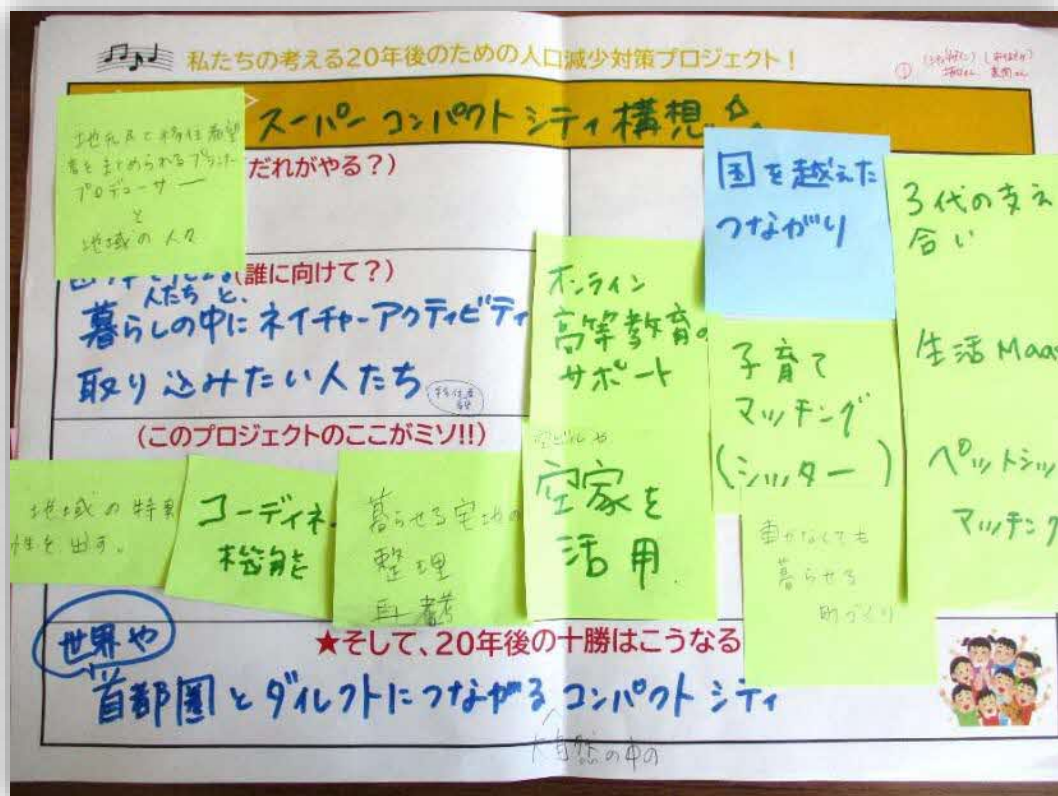 私たちの考える20年後のための人口減少対策プロジェクト!
スーパー コンパクト シティ 構想☆
地元民と移住希望
者をまとめられるプランナー
プロデューサー
と
地域の人々
だれがやる?)
(誰に向けて?)
人たちと、
暮らしの中にネイチャーアクティビティ
取り込みたい人たち
国を越えた
つながり
3代の支え
合い
生活Maas
ペットシッ
マッチング
オンライン
高等教育の
サポート
子育て
マッチング
(シッター)
(このプロジェクトのここがミソ!!)
地域の特
性を出す。
コーディネ
機能
暮らせる宅地の
整理
空ビルや
空家を
活用
車がなくても
暮らせる
町づくり
★そして、20年後の十勝はこうなる
世界や
首都圏とダイレクトにつながるコンパクト シティ
大自然の中の